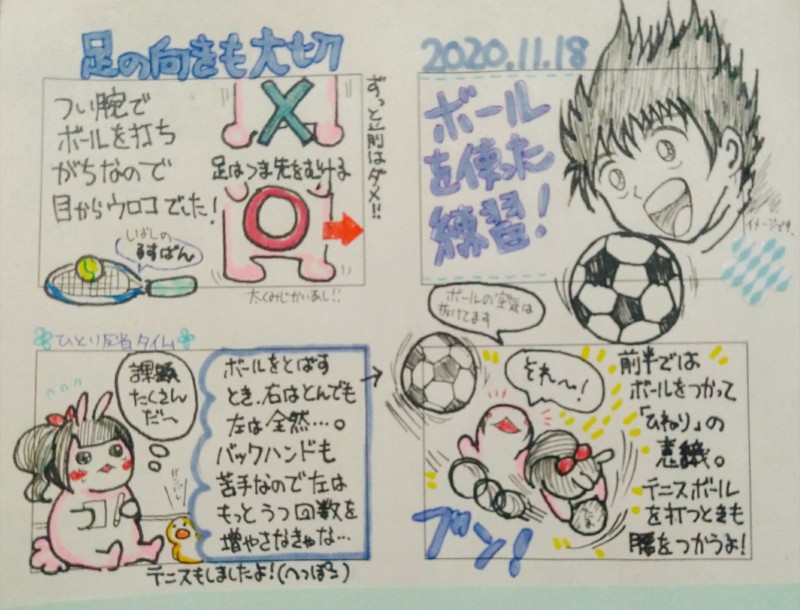 2020.11.18
ボール
を使った
練習!
イメージです。
ボールの空気は
抜けてます
それ〜!
前半では
ボールをつかって
「ひねり」の
意識。
テニスボール
を打つときも
腰をつかうよ!
ブン!
足の向きも大切
つい腕で
ボールを打ち
がちなので
目からウロコでした!
ずっと正前はダメ!!
足はつま先をむける
しばしの
るすばん
太くみじかいあし!!
ひとり反省タイム
課題
たくさん
だ〜
ボールをとばす
とき、右はとんでも
左は全然…。
バックハンドも
苦手なので左は
もっとうつ回数を
増やさなきゃな…
テニスもしましたよ!(へっぽこ)